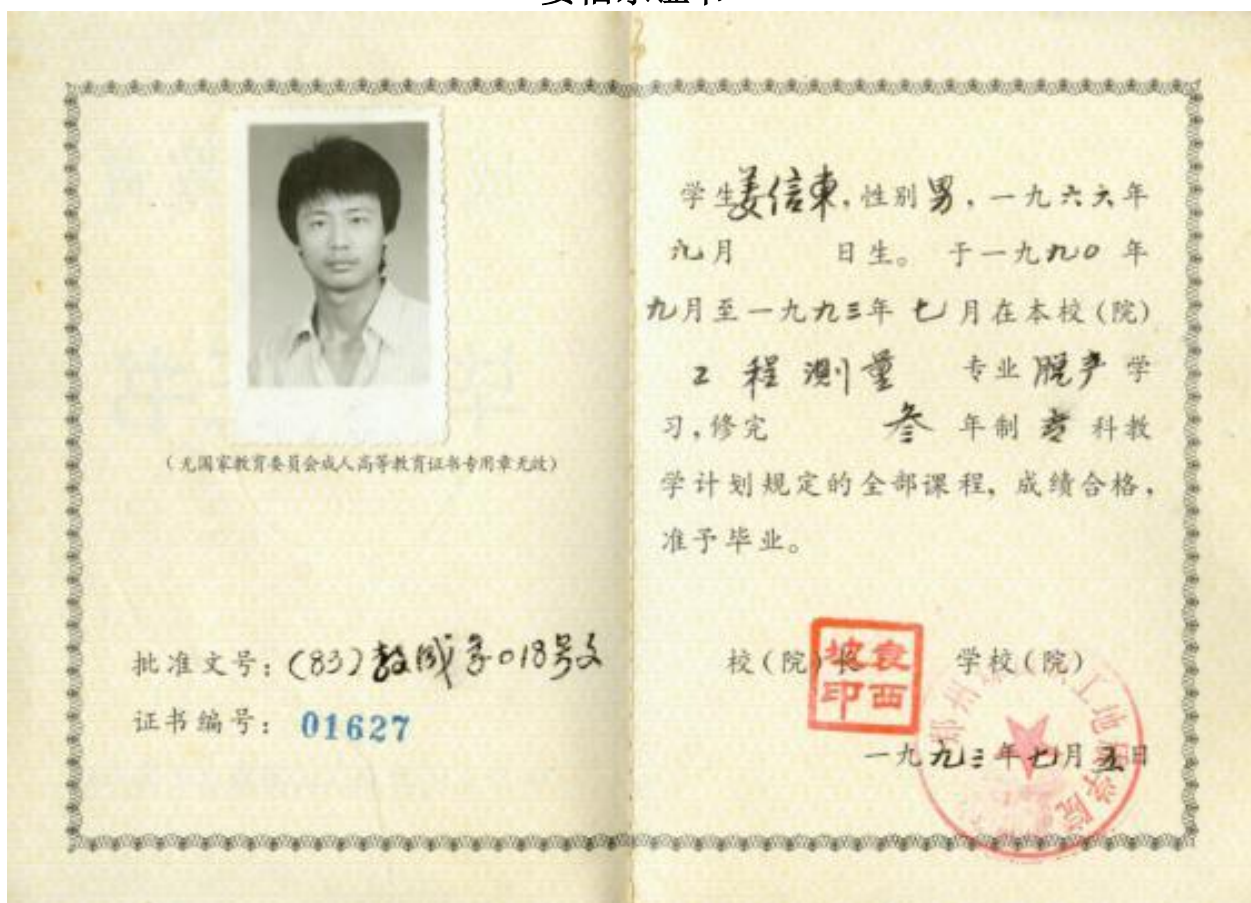 (无国家教育委员会成人高等教育证书专用章无效)
批准文号：(83)教成字018号文
证书编号：01627
学生姜信東,性别男,一九六六年
九月 日生。于一九九〇年
九月至一九九三年七月在本校(院)
工程测量 专业脱产学
习,修完 叁年制专科教
学计划规定的全部课程,成绩合格,
准予毕业。
校(院)长 学校(院)
袁西坡印
一九九三年七月五日